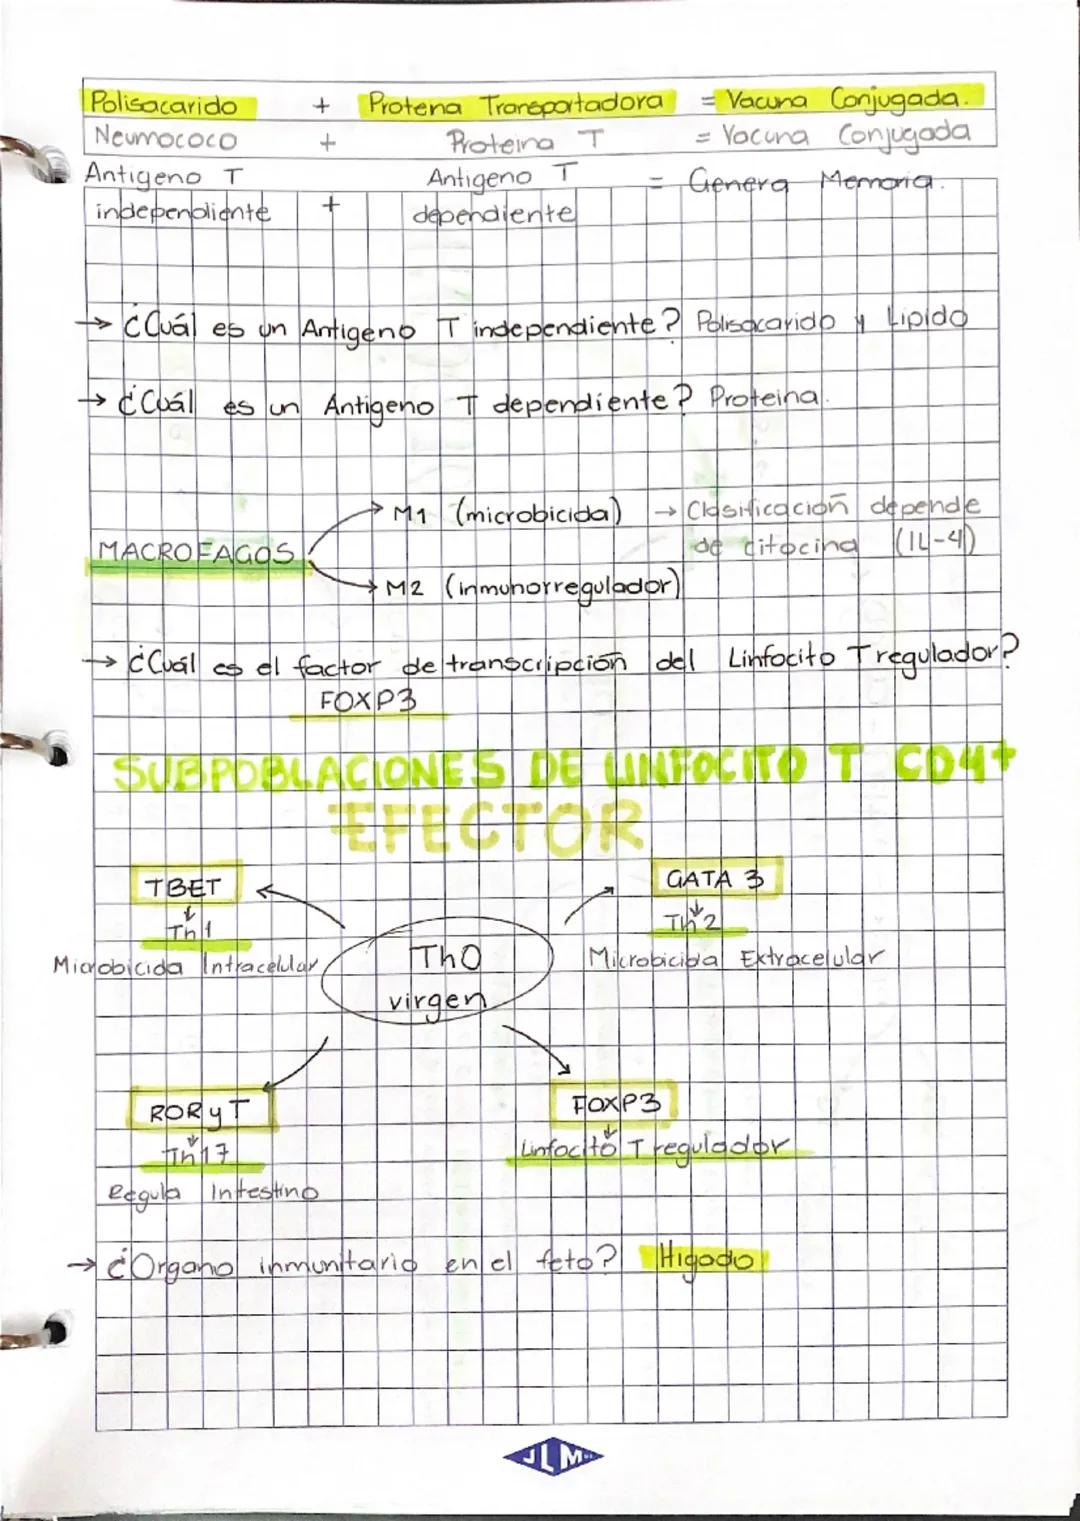 Polisacarido + Protena Transportadora = Vacuna Conjugada.
Neumococo + Proteina T = Vacuna Conjugada
Antigeno T independiente + Antigeno T dependiente = Genera Memoria.
→ ¿Cuál es un Antigeno T independiente? Polisacarido y Lipido
→ ¿Cuál es un Antigeno T dependiente? Proteina.
MACROFAGOS
→ M1 (microbicida) → Clasificación depende
de citocina (IL-4)
→ M2 (inmunorregulador)
→ ¿Cuál es el factor de transcripción del Linfocito T regulador?
FOXP3
SUBPOBLACIONES DE LINFOCITO T CD4+
EFECTOR
TBET
Th1
Microbicida Intracelular
GATA 3
Th2
Microbicida Extracelular
Th0
virgen
RORyT
Th17
Regula Intestino
FOXP3
Linfocito T regulador
→ ¿Organo inmunitario en el feto? Higado
JLM